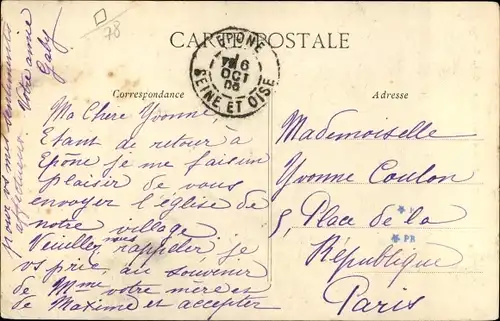 78
CARTE POSTALE
EPONE
6
OCT
SEINE ET OISE
Correspondance
Adresse
Ma Chère Yvonne,
Etant de retour à
Epone je me fais un
plaisir de vous
envoyer l'église de
notre village.
Veuillez nous rappeler, je
vs prie, au souvenir
de Mme votre mère et
de Maxime et accepter
pour vs mes sentiments
affectueux
Votre amie
Gaby
Mademoiselle
Yvonne Coulon
5, Place de la
République
Paris
PR